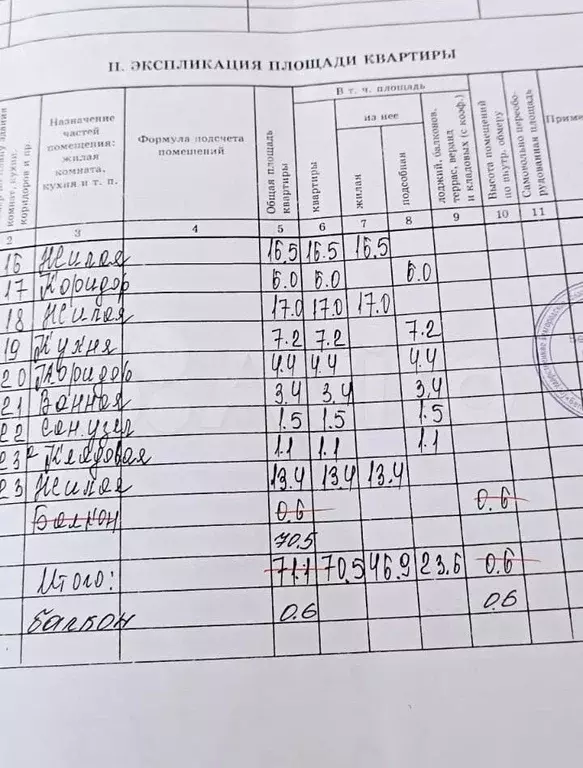 II. ЭКСПЛИКАЦИЯ ПЛОЩАДИ КВАРТИРЫ
комнат, кухни, коридоров и пр.
Назначение частей помещения: жилая комната, кухня и т. п.
Формула подсчета помещений
Общая площадь квартиры
В т. ч. площадь
квартиры
из нее
жилая
подсобная
лоджий, балконов, террас, веранд и кладовых (с коэф.)
Высота помещений по внутр. обмеру
Самовольно переоборудованная площадь
Приме
2 3 4 5 6 7 8 9 10 11
16 Жилая 16.5 16.5 16.5
17 Коридор 6.0 6.0 6.0
18 Жилая 17.0 17.0 17.0
19 Кухня 7.2 7.2 7.2
20 Коридор 4.4 4.4 4.4
21 Ванная 3.4 3.4 3.4
22 Сан.узел 1.5 1.5 1.5
23а Кладовая 1.1 1.1 1.1
23 Жилая 13.4 13.4 13.4
Балкон 0.6 0.6
70.5
Итого: 71.1 70.5 46.9 23.6 0.6
балкон 0.6 0.6